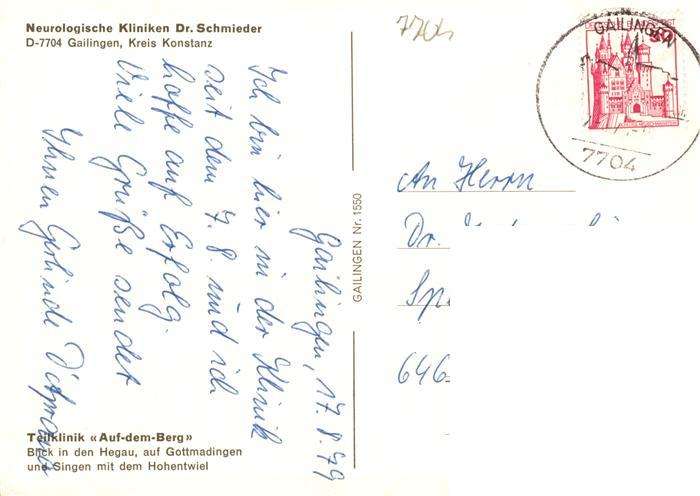 Neurologische Kliniken Dr. Schmieder
D-7704 Gailingen, Kreis Konstanz
7704
GAILINGEN
7704
Gailingen, 17.8.79
Ich bin hier in der Klinik
seit dem 7.8. und ich
hoffe auf Erfolg.
Viele Grüße sendet
Ihnen Gerlinde
GAILINGEN Nr. 1550
An Herrn
Dr.
646
Teilklinik «Auf-dem-Berg»
Blick in den Hegau, auf Gottmadingen
und Singen mit dem Hohentwiel